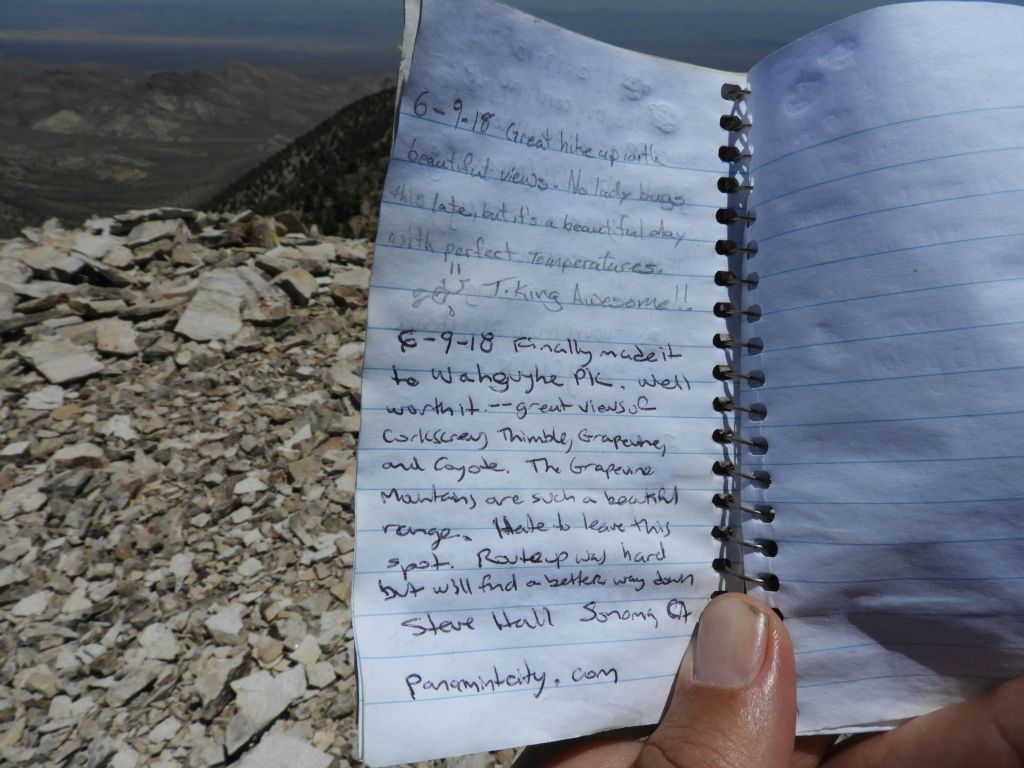 6-9-18 Great hike up with
beautiful views. No lady bugs
this late, but it's a beautiful day
with perfect Temperatures.
T. King Awesome!!
6-9-18 Finally made it
to Wahguyhe PK. Well
worth it. -- great views of
Corkscrew, Thimble, Grapevine,
and Coyote. The Grapevine
Mountains are such a beautiful
range. Hate to leave this
spot. Route up was hard
but will find a better way down
Steve Hall Sonoma, CA
Panamintcity.com